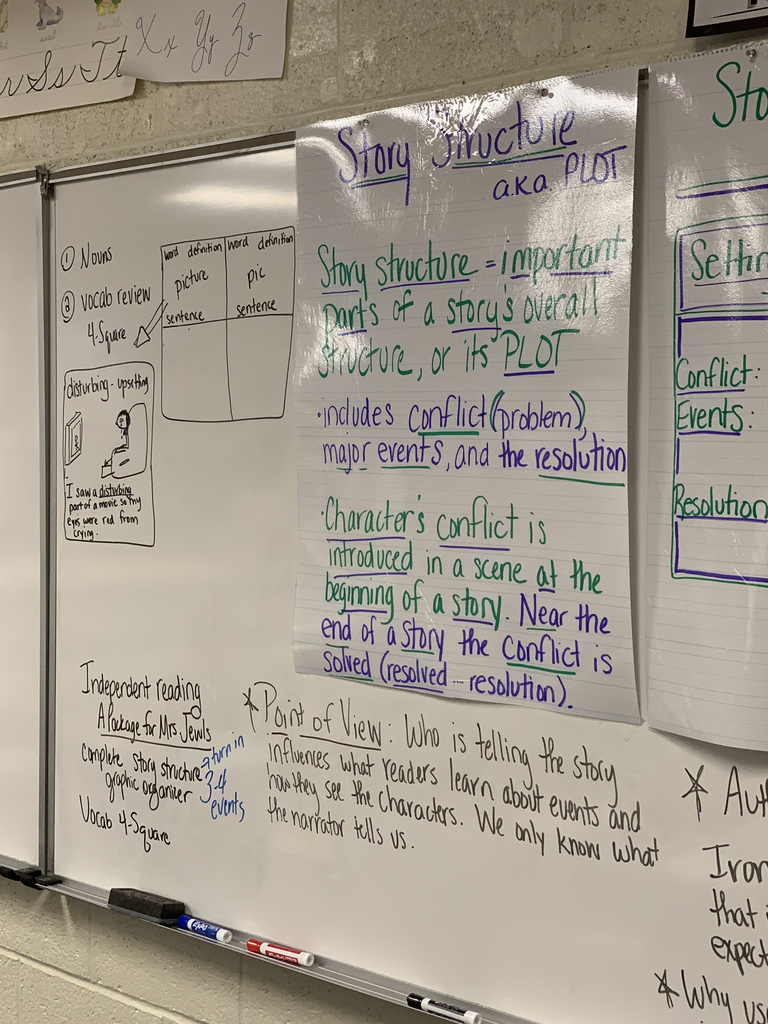 seal
Ss Tt
Xx Yy Zz
① Nouns
② vocab review
4-Square
word definition
picture
sentence
word definition
pic
sentence
disturbing - upsetting
I saw a disturbing
part of a movie so my
eyes were red from
crying.
Story Structure
a.k.a PLOT
Story structure = important
parts of a story's overall
structure, or its PLOT
·includes conflict (problem),
major events, and the resolution
·Character's conflict is
introduced in a scene at the
beginning of a story. Near the
end of a story the conflict is
solved (resolved ... resolution).
Conflict:
Events:
Resolution
Independent reading
A Package for Mrs. Jewls
Complete story structure → turn in
graphic organizer 3-4
events
Vocab 4-Square
* Point of View: Who is telling the story
influences what readers learn about events and
how they see the characters. We only know what
the narrator tells us.
*
that
*Why
EXPO